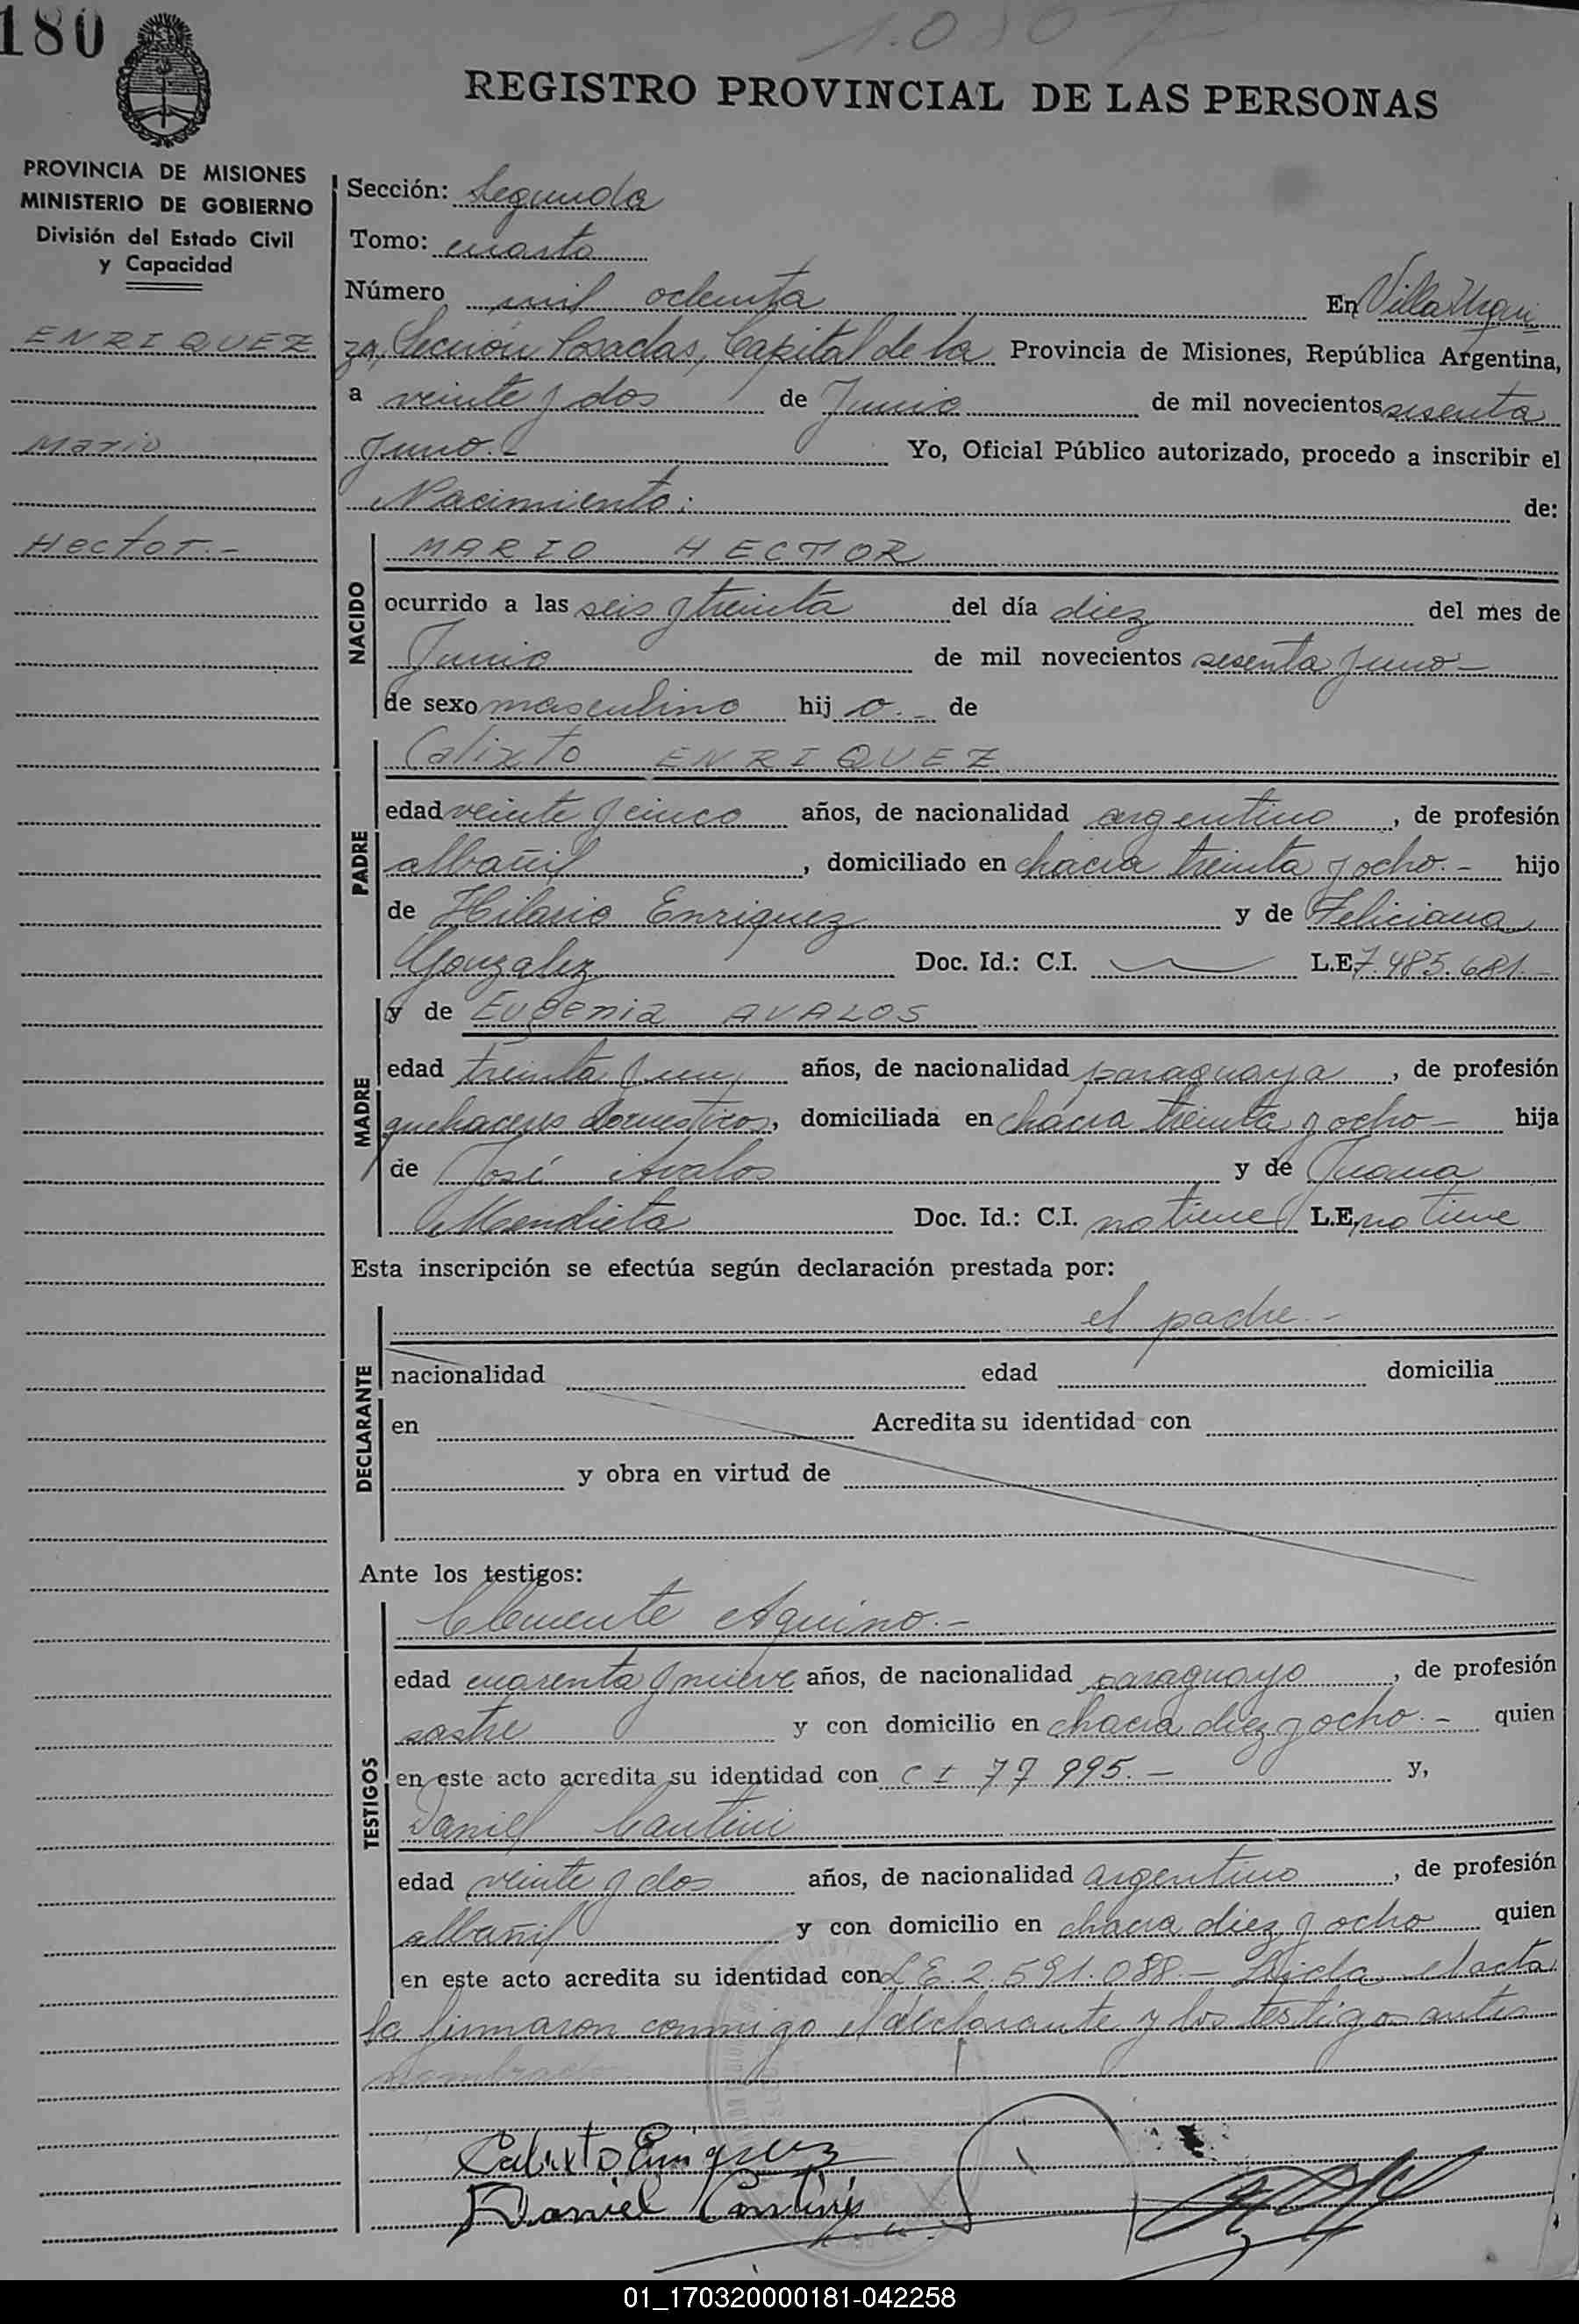 180
1.080
REGISTRO PROVINCIAL DE LAS PERSONAS
PROVINCIA DE MISIONES
MINISTERIO DE GOBIERNO
División del Estado Civil
y Capacidad
ENRIQUEZ
Mario
Hector.-
Sección: Segunda
Tomo: cuarto
Número mil ochenta En Villa Urqui
za, Sección Posadas, Capital de la Provincia de Misiones, República Argentina,
a veinte y dos de Junio de mil novecientos sesenta
y uno.- Yo, Oficial Público autorizado, procedo a inscribir el
Nacimiento: de:
NACIDO
MARIO HECTOR
ocurrido a las seis y treinta del día diez del mes de
Junio de mil novecientos sesenta y uno-
de sexo masculino hij o.- de
PADRE
Calixto ENRIQUEZ
edad veinte y cinco años, de nacionalidad argentino, de profesión
albañil, domiciliado en chacra treinta y ocho.- hijo
de Hilario Enriquez y de Feliciana
Gonzalez Doc. Id.: C.I. L.E. 7.485.681.-
MADRE
y de Eugenia AVALOS
edad treinta y un años, de nacionalidad paraguaya, de profesión
quehaceres domesticos, domiciliada en chacra treinta y ocho- hija
de José Avalos y de Juana
Mendieta Doc. Id.: C.I. no tiene L.E. no tiene
Esta inscripción se efectúa según declaración prestada por:
DECLARANTE
el padre.-
nacionalidad edad domicilia
en Acredita su identidad con
y obra en virtud de
Ante los testigos:
TESTIGOS
Clemente Aquino.-
edad cuarenta y nueve años, de nacionalidad paraguayo, de profesión
sastre y con domicilio en chacra diez y ocho.- quien
en este acto acredita su identidad con CI 77995.- y,
Daniel Cantini
edad veinte y dos años, de nacionalidad argentino, de profesión
albañil y con domicilio en chacra diez y ocho quien
en este acto acredita su identidad con LE.2.591.088.- Leida el acta
la firmaron conmigo el declarante y los testigos antes
nombrados
Calixto Enriquez
Daniel Cantini
01_170320000181-042258